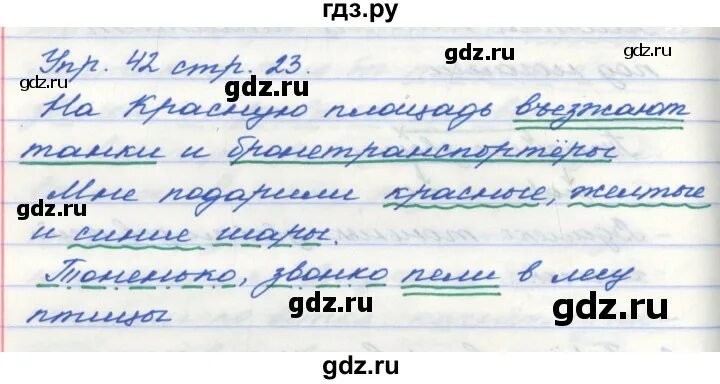 гдз.ру
gdz.ru gdz.ru
Упр. 42 стр. 23.
gdz.ru
На Красную площадь въезжают
танки и бронетранспортёры
gdz.ru gdz.ru
Мне подарили красные, желтые
gdz.ru gdz.ru
и синие шары.
Тоненько, звонко пели в лесу
gdz.ru gdz.ru
птицы
gdz.ru